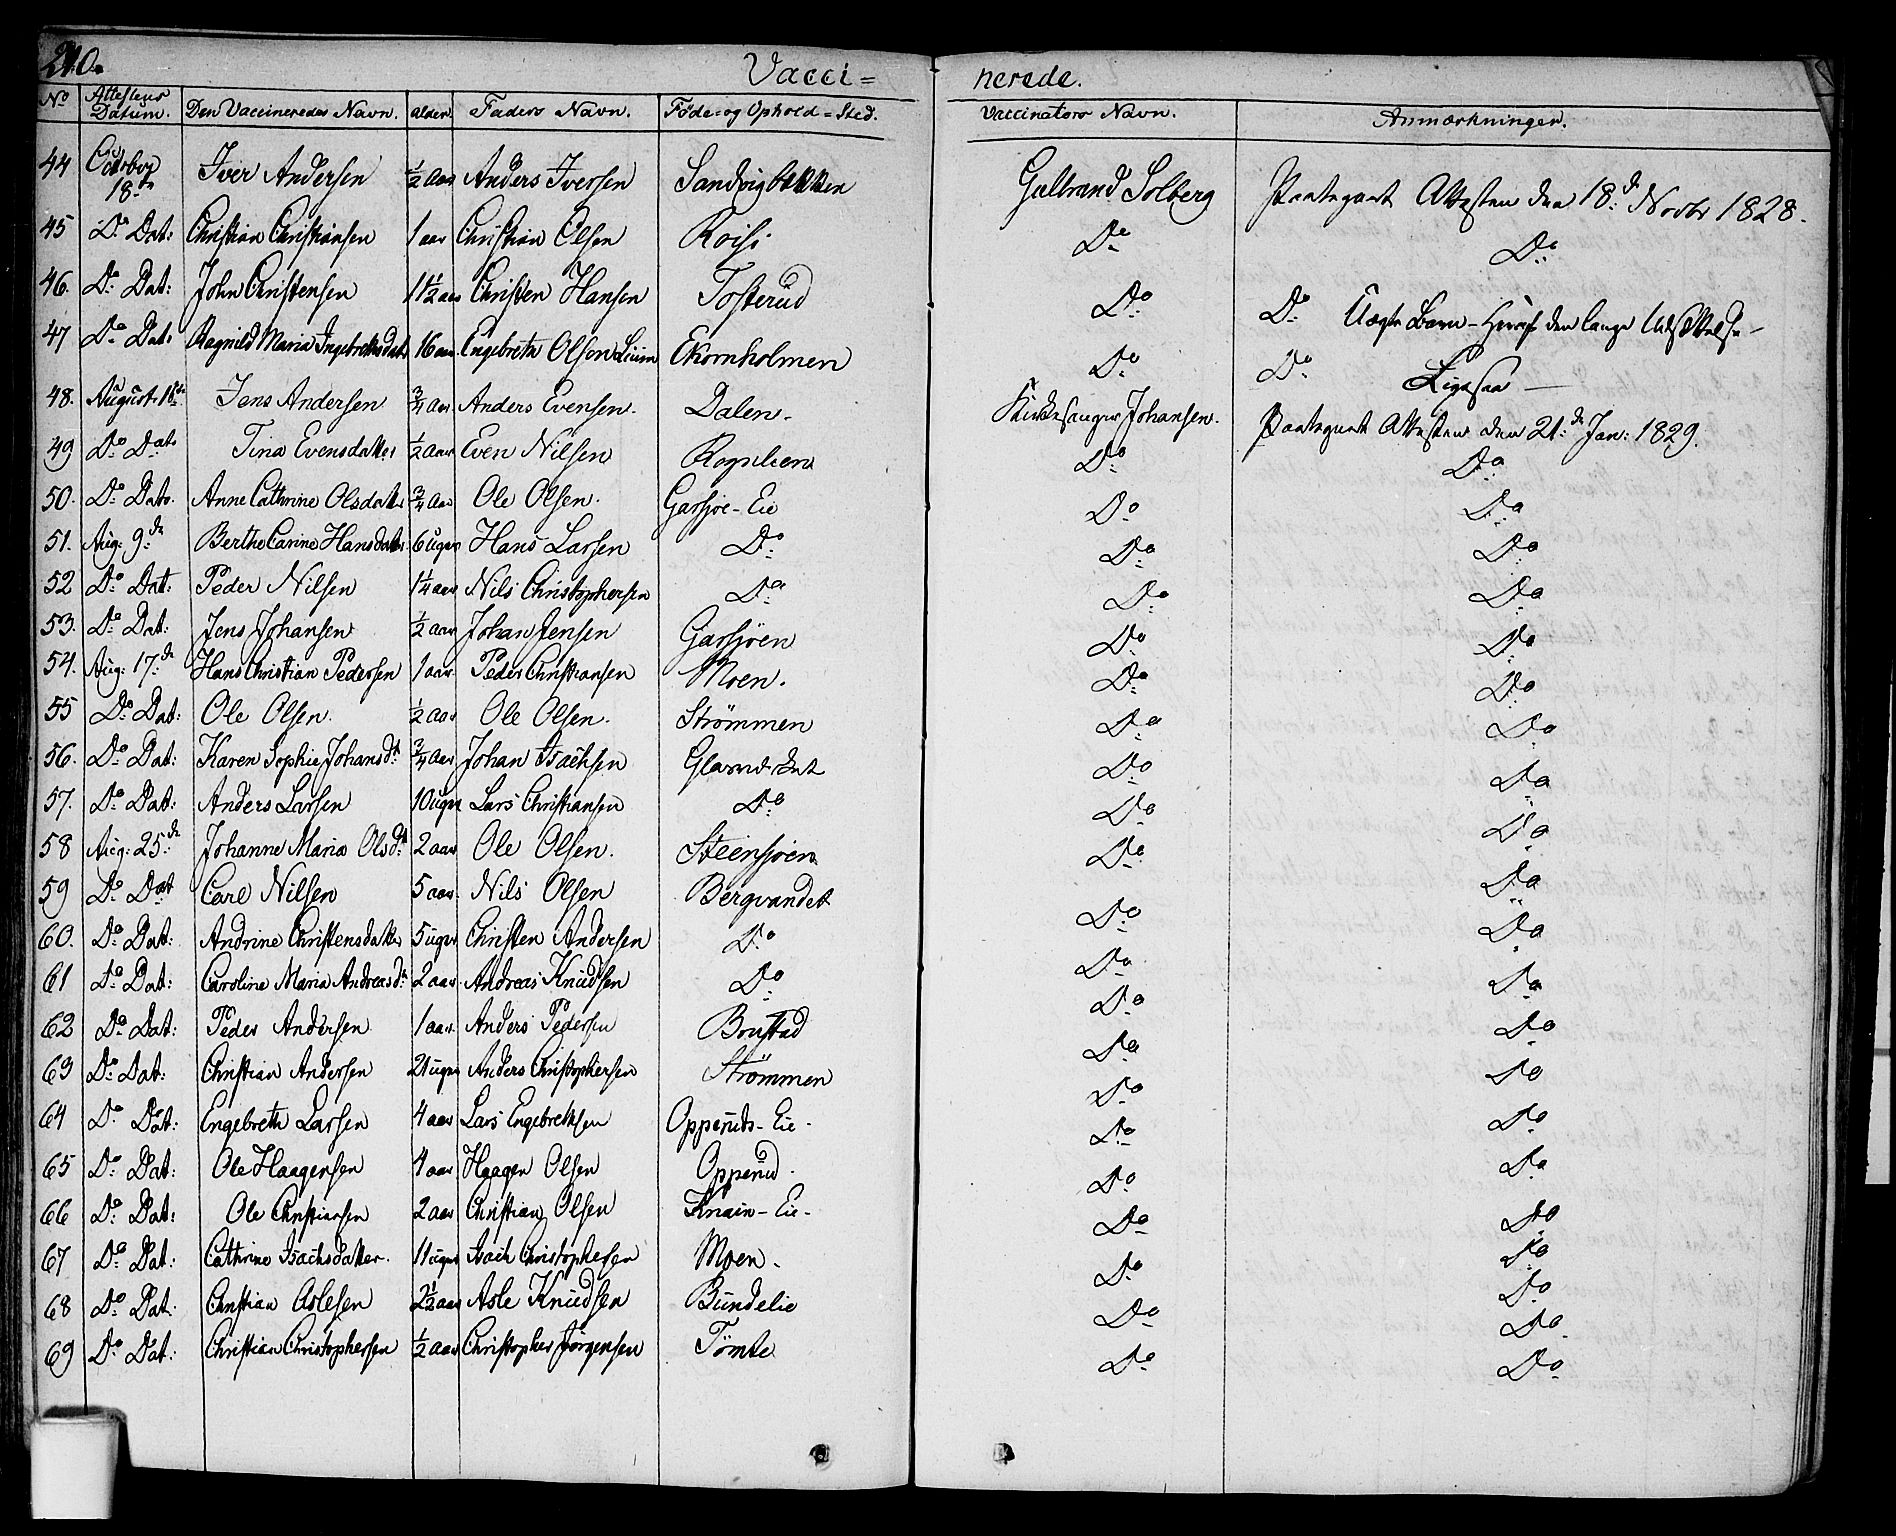 210.
Vacci=nerede.
No Attestens Datum. Den Vaccineredes Navn. alder. Faders Navn. Føde=og Ophold=Sted. Vaccinators Navn. Anmærkninger.
44 Octobr 18de Iver Andersen ½ aar Anders Iversen Sandvigbakken Gulbrand Solberg Paategnet Attesten den 18de Novbr 1828.
45 Do Dat: Christian Christiansen 1 aar Christian Olsen Roisi Do Do
46. Do Dat: John Christensen 1½ aar Christen Hansen Tosterud Do Do Uægte Barn - Heraf den lange Udsættelse -
47 Do Dat: Ragnild Maria Ingebrethsdatr 16 aar Engebreth Olsen Liium Ekornholmen Do Do Ligesaa —
48. August 18de Jens Andersen ¾ aar Anders Evensen. Dalen - Kirkesanger Johansen. Paategnet Attesten den 21de Jan: 1829.
49 Do Dat: Tina Evensdatter ½ aar Even Nilsen Rognlien Do Do
50. Do Dato. Anne Cathrine Olsdatter ¾ aar Ole Olsen. Garsjøe - Eie Do Do
51. Aug: 9de Berthe Carine Hansdatter 6 uger Hans Larsen Do Do Do
52 Do Dat: Peder Nilsen 1¼ aar Nils Christophersen Do Do Do
53. Do Dat: Jens Johansen ½ aar Johan Jensen Garsjöen Do Do
54. Aug: 17de Hans Christian Pedersen 1 aar Peder Christiansen Moen. Do Do
55 Do Dat: Ole Olsen. ½ aar Ole Olsen. Strömmen Do Do
56. Do Dat: Karen Sophie Johansdt ¾ aar Johan Isachsen Do Do
57. Do Dat: Anders Larsen 10 uger Lars Christiansen Do Do Do
58 Aug: 25de Johanne Maria Olsdt 2 aar Ole Olsen. Steensjøen Do Do
59 Do Dat Carl Nilsen 5 aar. Nils Olsen Bergvandet Do Do
60. Do Dat: Andrine Christensdatter 5 uger Christen Andersen Do Do Do
61 Do Dat: Caroline Maria Andreasdt 2 aar. Andreas Knudsen Do Do Do
62 Do Dat: Peder Andersen 1 aar. Anders Pedersen Brustad Do Do
63 Do Dat: Christian Andersen 21 uger Anders Christophersen Strömmen Do Do
64 Do Dat: Engebreth Larsen 4 aar Lars Engebrethsen Opperuds - Eie - Do Do
65 Do Dat: Ole Haagensen 4 aar Haagen Olsen Opperud. Do Do
66 Do Dat: Ole Christiansen 2 aar Christian Olsen Knain - Eie - Do Do
67 Do Dat: Cathrine Isachsdatter. 11 uger Isach Christophersen Moen. Do Do
68 Do Dat: Christian Aslesen 2½ aar Asle Knudsen Bundelie Do Do
69 Do Dat: Christian Christophersen ½ aar Christopher Jörgensen Tömte Do Do